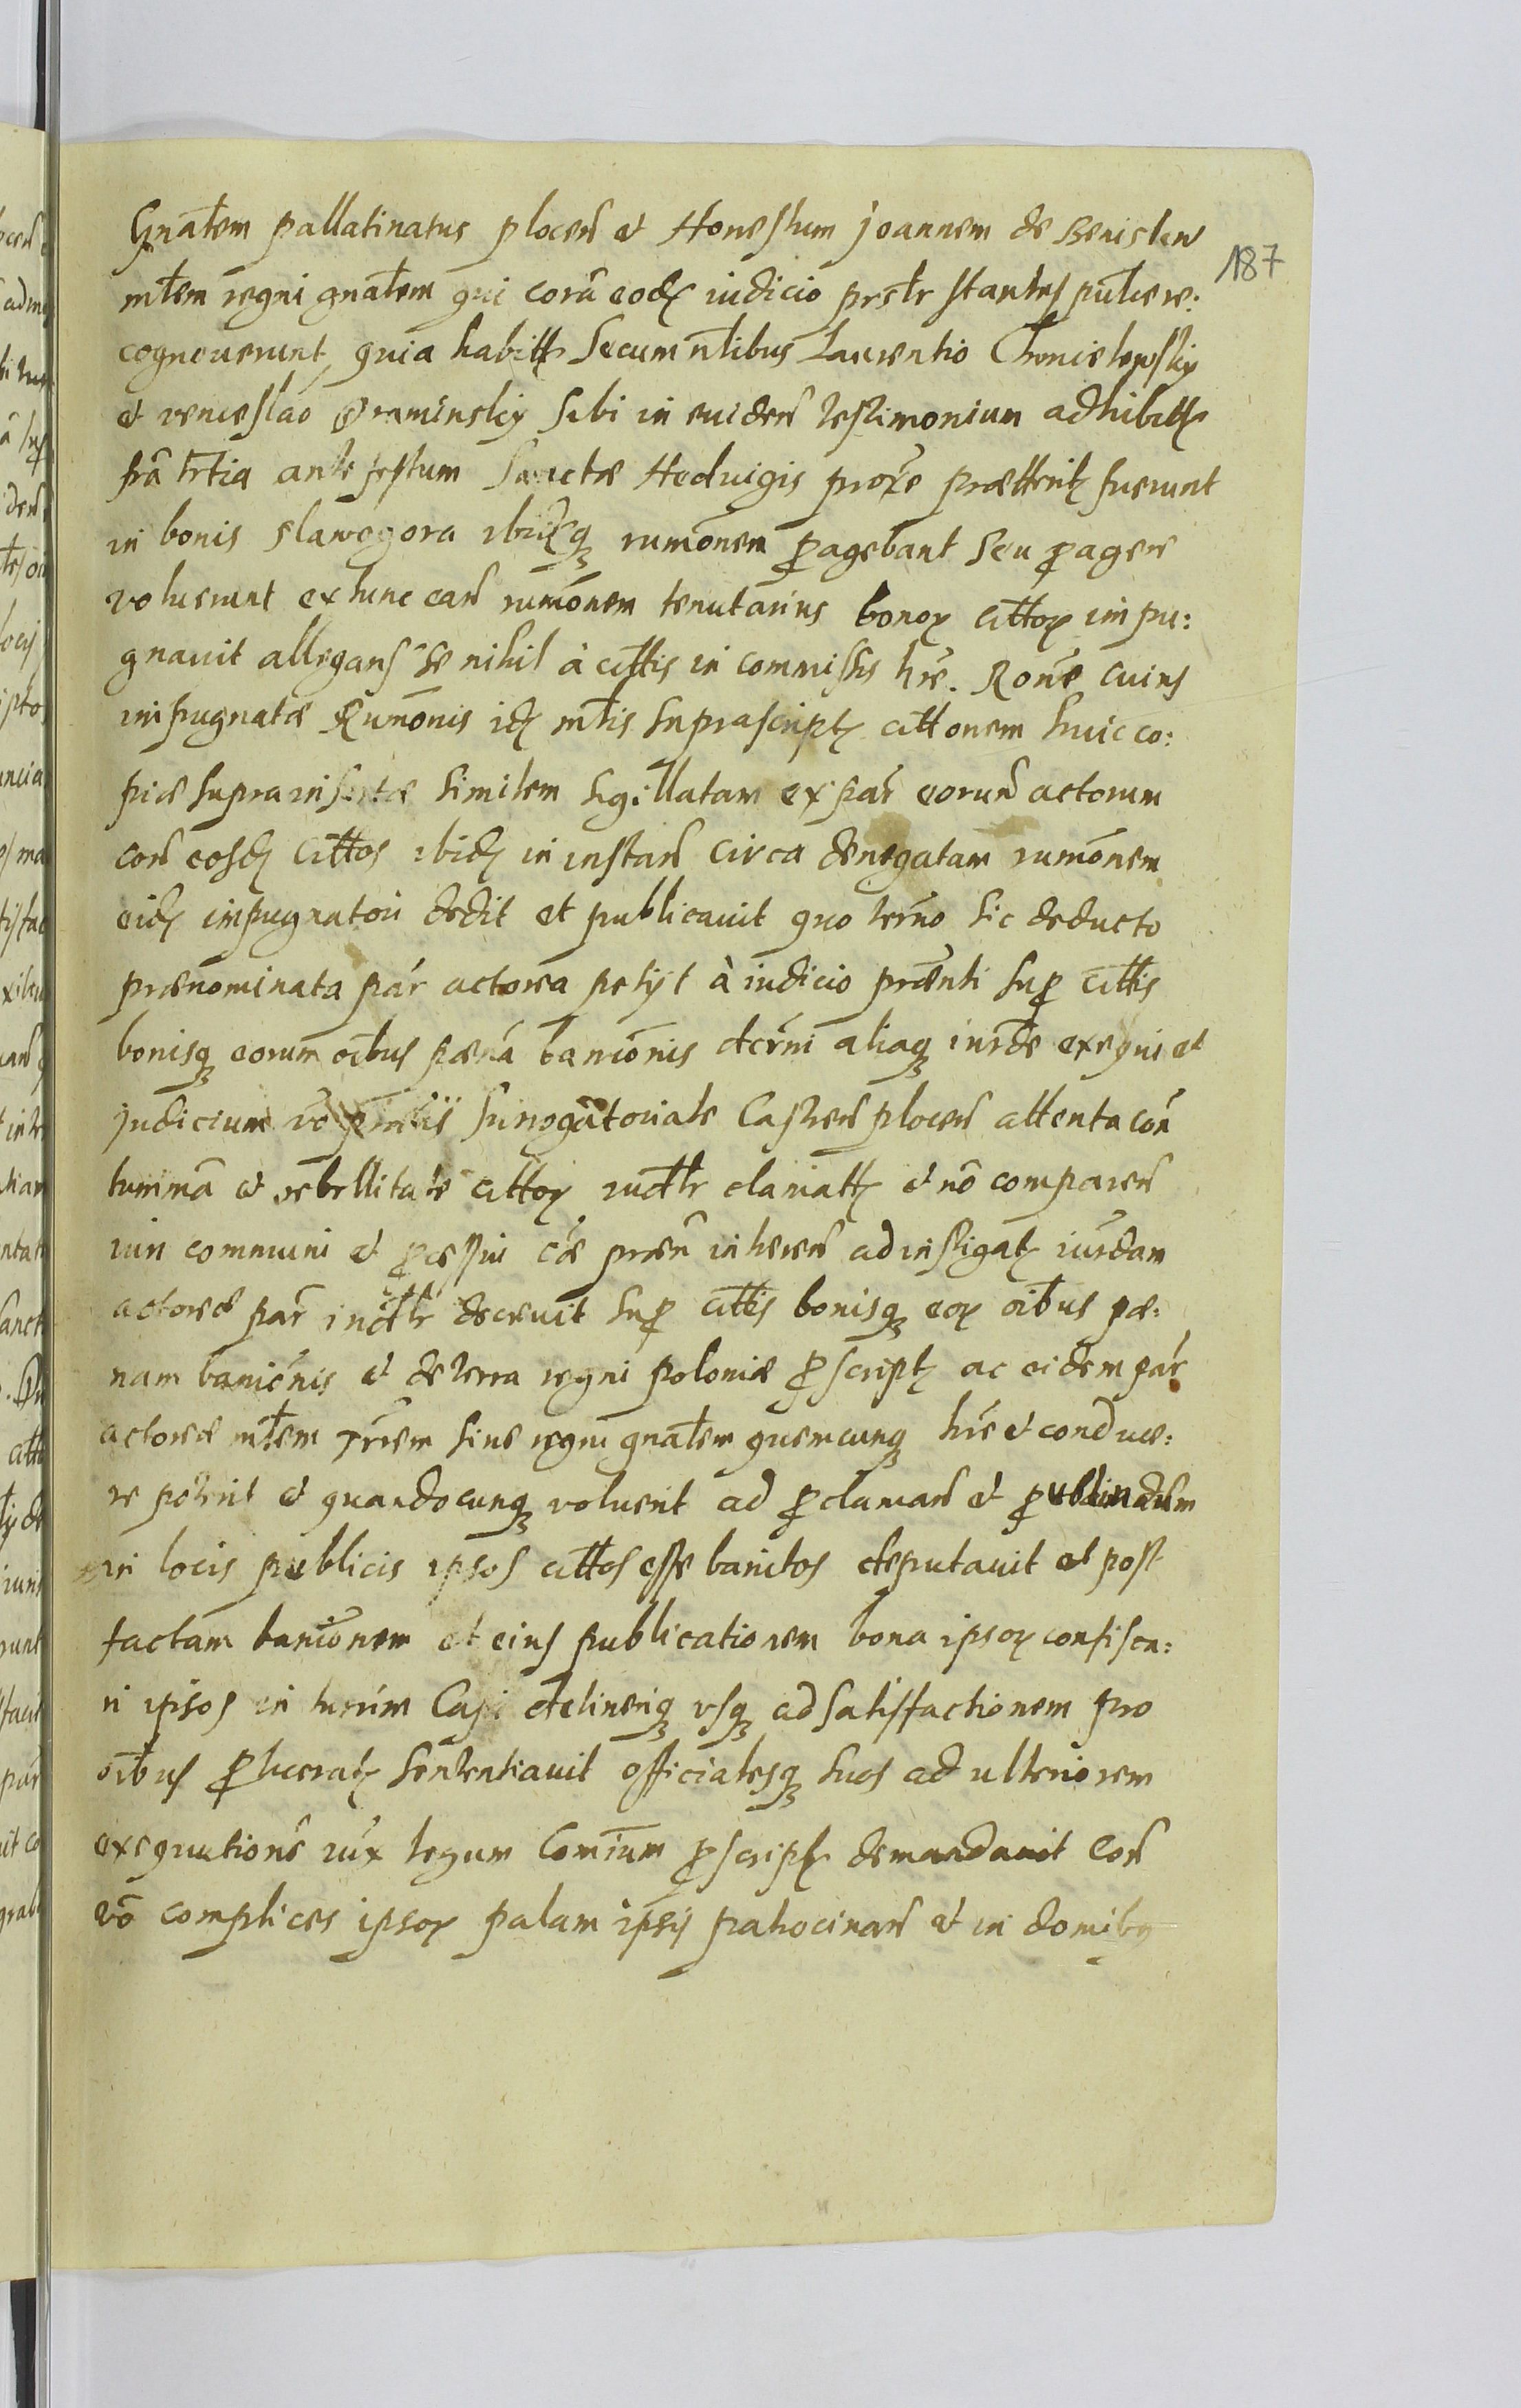 Gnãlem pallatinatus plocen̄ et Honestum Joannem de Benislew
187
mtem regni gnãlem qui corã eodē iudicio prstr stantes pulice re:
cognouerunt, quia habitis Secum ntibus Laurentio Chmielewsky
et venceslao Graminsky Sibi in euiden̄ testimonium adhibitis
fra trtia ante festum Sanctæ Heduigis prox̄e præterit fuerunt
in bonis slawogora ibidēq rumōnem ꝓagebant seu ꝓagere
voluerunt ex tunc ean̄ rumōnem tenutarius bonoꝝ cittoꝝ impu:
gnauit allegans se nihil à cittis in commissis hr̄e. Rōne cuius
impugnatæ Rumōnis idē mtis suprascript cittonem huic co:
piæ supra insertæ similem sigillatam ex par̄ eorun̄ actorum
con̄ eosdē Cittos ibidē in instan̄ circa denegatam rumōnem
eidē impugnatori dedit et publicauit quo ter̄no sic deducto
prænominata par̄ actorea petijt à iudicio prænti suꝑ cittis
bonisq eorum oībus pænã banīonis decrni aliaq iurde exequi et
judicium vō Surrogatoriale Castren̄ plocen̄ attenta con̄
tumīnã et rebellitate cittoꝝ mctlr clamat et nō comparen̄
iuri communi et ꝓcessui cæ præn̄ inheren̄ ad instigat iurdam
actoreæ par̄ inctlr decreuit suꝑ cittis bonisq eoꝝ oībus pæ:
nam banīonis et de terra regni poloniæ ꝓscript ac eidem par̄
actoreæ mtem trrem siue regni gnãlem quemcunq hr̄e et conduce:
re poterit et quandocunq voluerit ad ꝓclaman̄ et
in locis publicis ipsos cittos esse banitos deputauit et post
factam banīonem et eius publicationem bona ipsoꝝ confisca:
ri ipsos in turrim Capi detineriq vsq ad satisfactionem pro
oībus ꝓlucrat sententiauit officialesq suos ad ulteriorem
exequutionē iux legum Comīum ꝓscript demandauit Con̄
vō complices ipsoꝝ palam ipsis patrocinan̄ et in domibꝯ